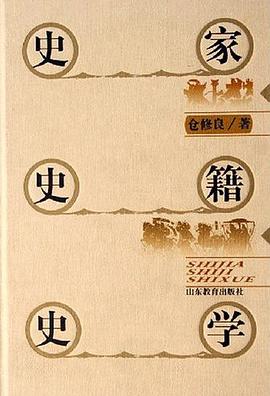 史家
仓修良／著
史籍
SHIJIA
SHIJI
SHIXUE
山东教育出版社
史学